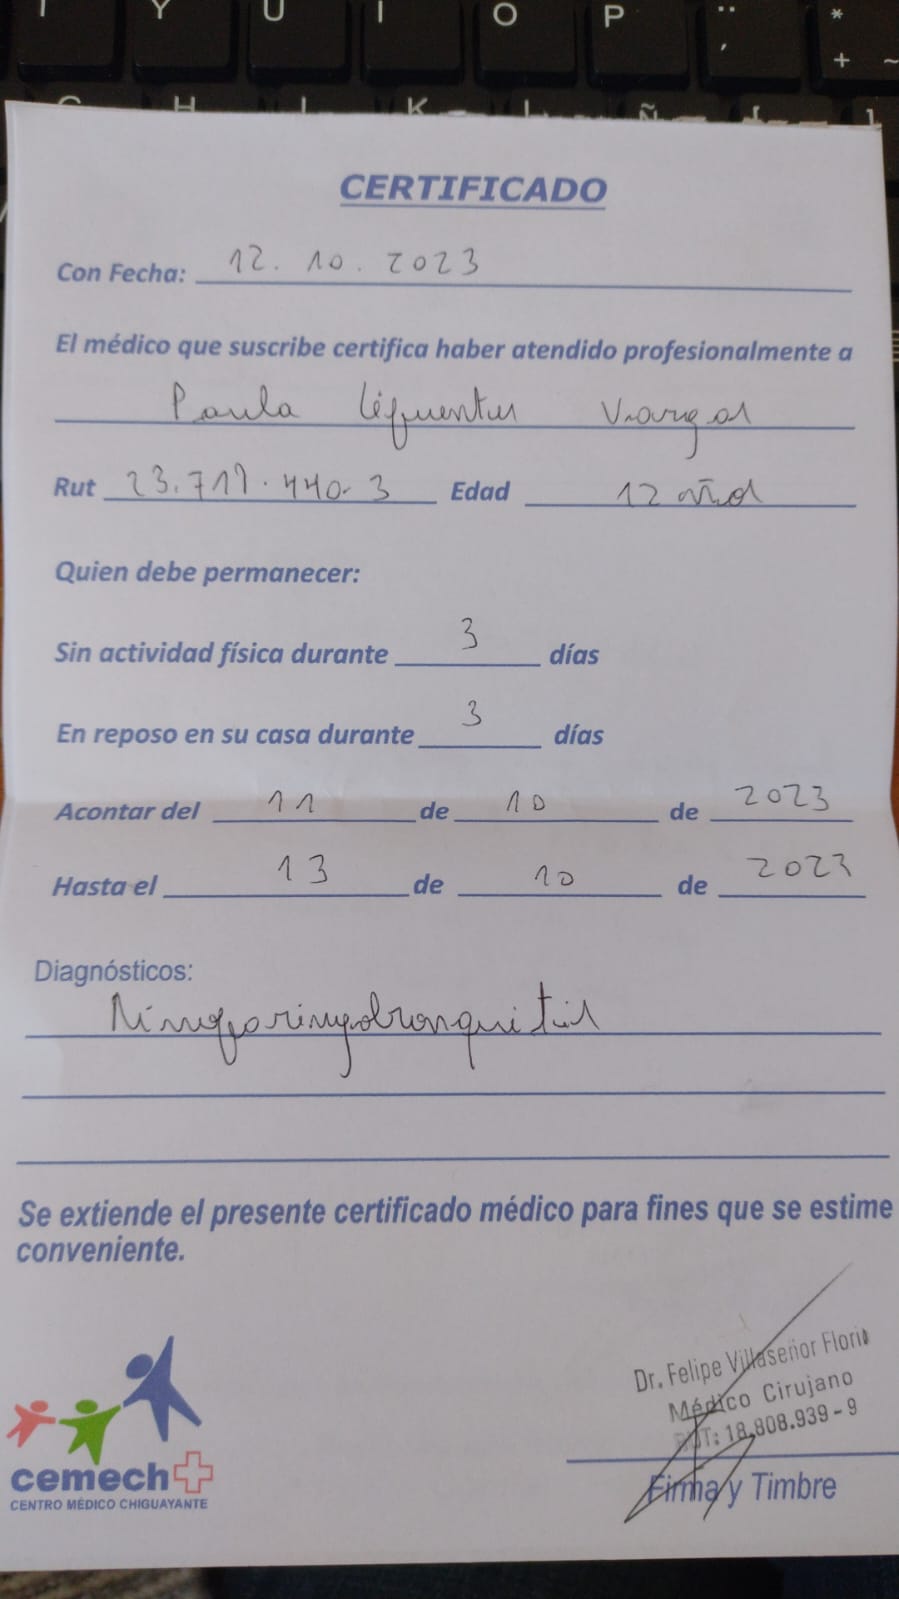 Y U I O P ¨ ´ * + ~
G H J K L Ñ [ ]
CERTIFICADO
Con Fecha: 12. 10. 2023
El médico que suscribe certifica haber atendido profesionalmente a
Paula Cifuentes Vargas
Rut 23.719.440-3 Edad 12 años
Quien debe permanecer:
Sin actividad física durante 3 días
En reposo en su casa durante 3 días
Acontar del 11 de 10 de 2023
Hasta el 13 de 10 de 2023
Diagnósticos:
Rinofaringobronquitis
Se extiende el presente certificado médico para fines que se estime
conveniente.
Dr. Felipe Villaseñor
Médico Cirujano
RUT: 18.808.939-9
Firma y Timbre
cemech
CENTRO MÉDICO CHIGUAYANTE